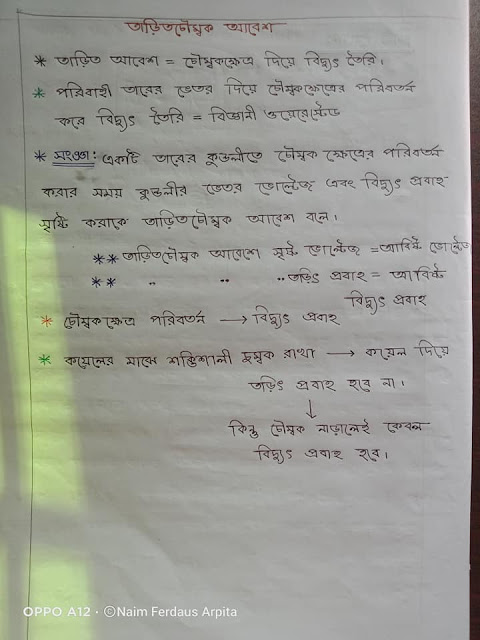 তাড়িতচৌম্বক আবেশ
* তাড়িত আবেশ = চৌম্বকক্ষেত্র দিয়ে বিদ্যুৎ তৈরি।
* পরিবাহী তারের ভেতর দিয়ে চৌম্বকক্ষেত্রের পরিবর্তন
করে বিদ্যুৎ তৈরি = বিজ্ঞানী ওয়েরস্টেড
* সংজ্ঞা: একটি তারের কুন্ডলীতে চৌম্বক ক্ষেত্রের পরিবর্তন
করার সময় কুন্ডলীর ভেতর ভোল্টেজ এবং বিদ্যুৎ প্রবাহ
সৃষ্টি করাকে তাড়িতচৌম্বক আবেশ বলে।
** তাড়িতচৌম্বক আবেশে সৃষ্ট ভোল্টেজ = আবিষ্ট ভোল্টেজ
** " " " তড়িৎ প্রবাহ = আবিষ্ট
বিদ্যুৎ প্রবাহ
* চৌম্বকক্ষেত্র পরিবর্তন → বিদ্যুৎ প্রবাহ
* কয়েলের মাঝে শক্তিশালী চুম্বক রাখা → কয়েল দিয়ে
তড়িৎ প্রবাহ হবে না।
↓
কিন্তু চৌম্বক নাড়ালেই কেবল
বিদ্যুৎ প্রবাহ হবে।
OPPO A12 · ©Naim Ferdaus Arpita